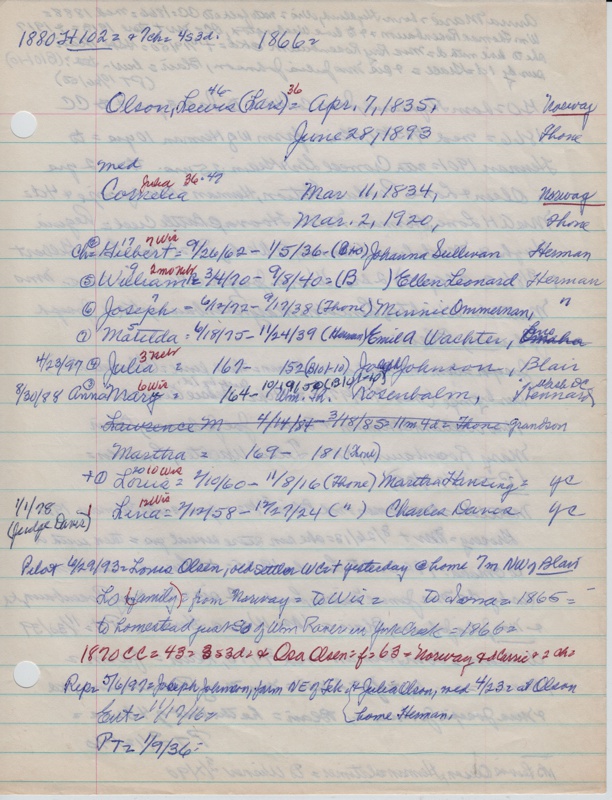 1880 H102 = & 7ch = 4s3d. 1866 =
46 36
Olson, Lewis (Lars) = Apr. 7, 1835, Norway
June 28, 1893 Thone
med
Julia 36 - 47
Cornelia Mar 11, 1834, Norway
Mar. 2, 1920, Thone
17 7 Wis
Ch = Hilbert = 9/26/62 - 1/5/36 - (B Johanna Sullivan Herman
9 2mo Nebr
⑤ William = 3/4/70 - 9/8/40 = (B ) Ellen Leonard Herman
7
⑥ Joseph - 6/12/72 - 9/17/38 (Thone) Minnie Ommerman, "
5
Matilda = 6/18/75 - 11/24/39 (Herman) Emil A Wachter, Omaha
3 Nebr
4/23/97 ④ Julia = 167 - 152 (B10+10) Joseph Johnson, Blair
6 Wis 10/19/50
8/30/88 ③ Anna Mary = 164 - Wm. Rosenbalm, Kennard
Lawrence M 4/14/84 - 3/18/85 = 11m 4d = Thone Grandson
Martha = 169 - 181 (Thone)
10 Wis
+ ① Louis = 2/10/60 - 11/8/16 (Thone) Martha Hansing = yc
12 Wis
7/1/78 Lena = 2/12/58 - 12/27/24 ( " ) Charles Davis yc
(Judge Davis)
Pilot 6/29/93 = Louis Olsen, old settler WCo + yesterday @ home 7m NW of Blair
Ls (family) from Norway = to Wis = to Iowa = 1865 =
to homestead just So of Wm River in York Creek = 1866 =
1870 CC = 43 = 3s3d = & Osa Olsen = f = 63 = Norway & & 2 ch =
Rep = 5/6/97 = Joseph Johnson, farm NE of Tek. & Julia Olson, med 4/23 = at Olson
Ent = 11/17/16 = home Herman.
PT = 1/9/36 =